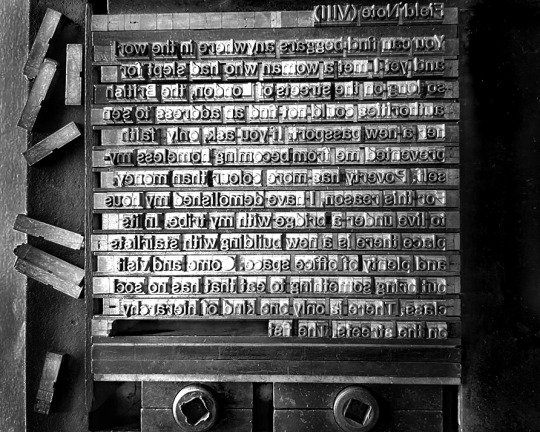 Field Note (VIII)
You can find beggars anywhere in the worl
and yet I met a woman who had slept for
so long on the streets of London, the British
authorities could not find an address to sen
her a new passport. If you ask, only faith
prevented me from becoming homeless my-
self. Poverty has more colour than money.
For this reason, I have demolished my hous
to live under a bridge with my tribe. In its
place there is a new building with
and plenty of office space. Come and visit
but bring something to eat that has no soc
class. There is only one kind of hierarchy
in the streets. The